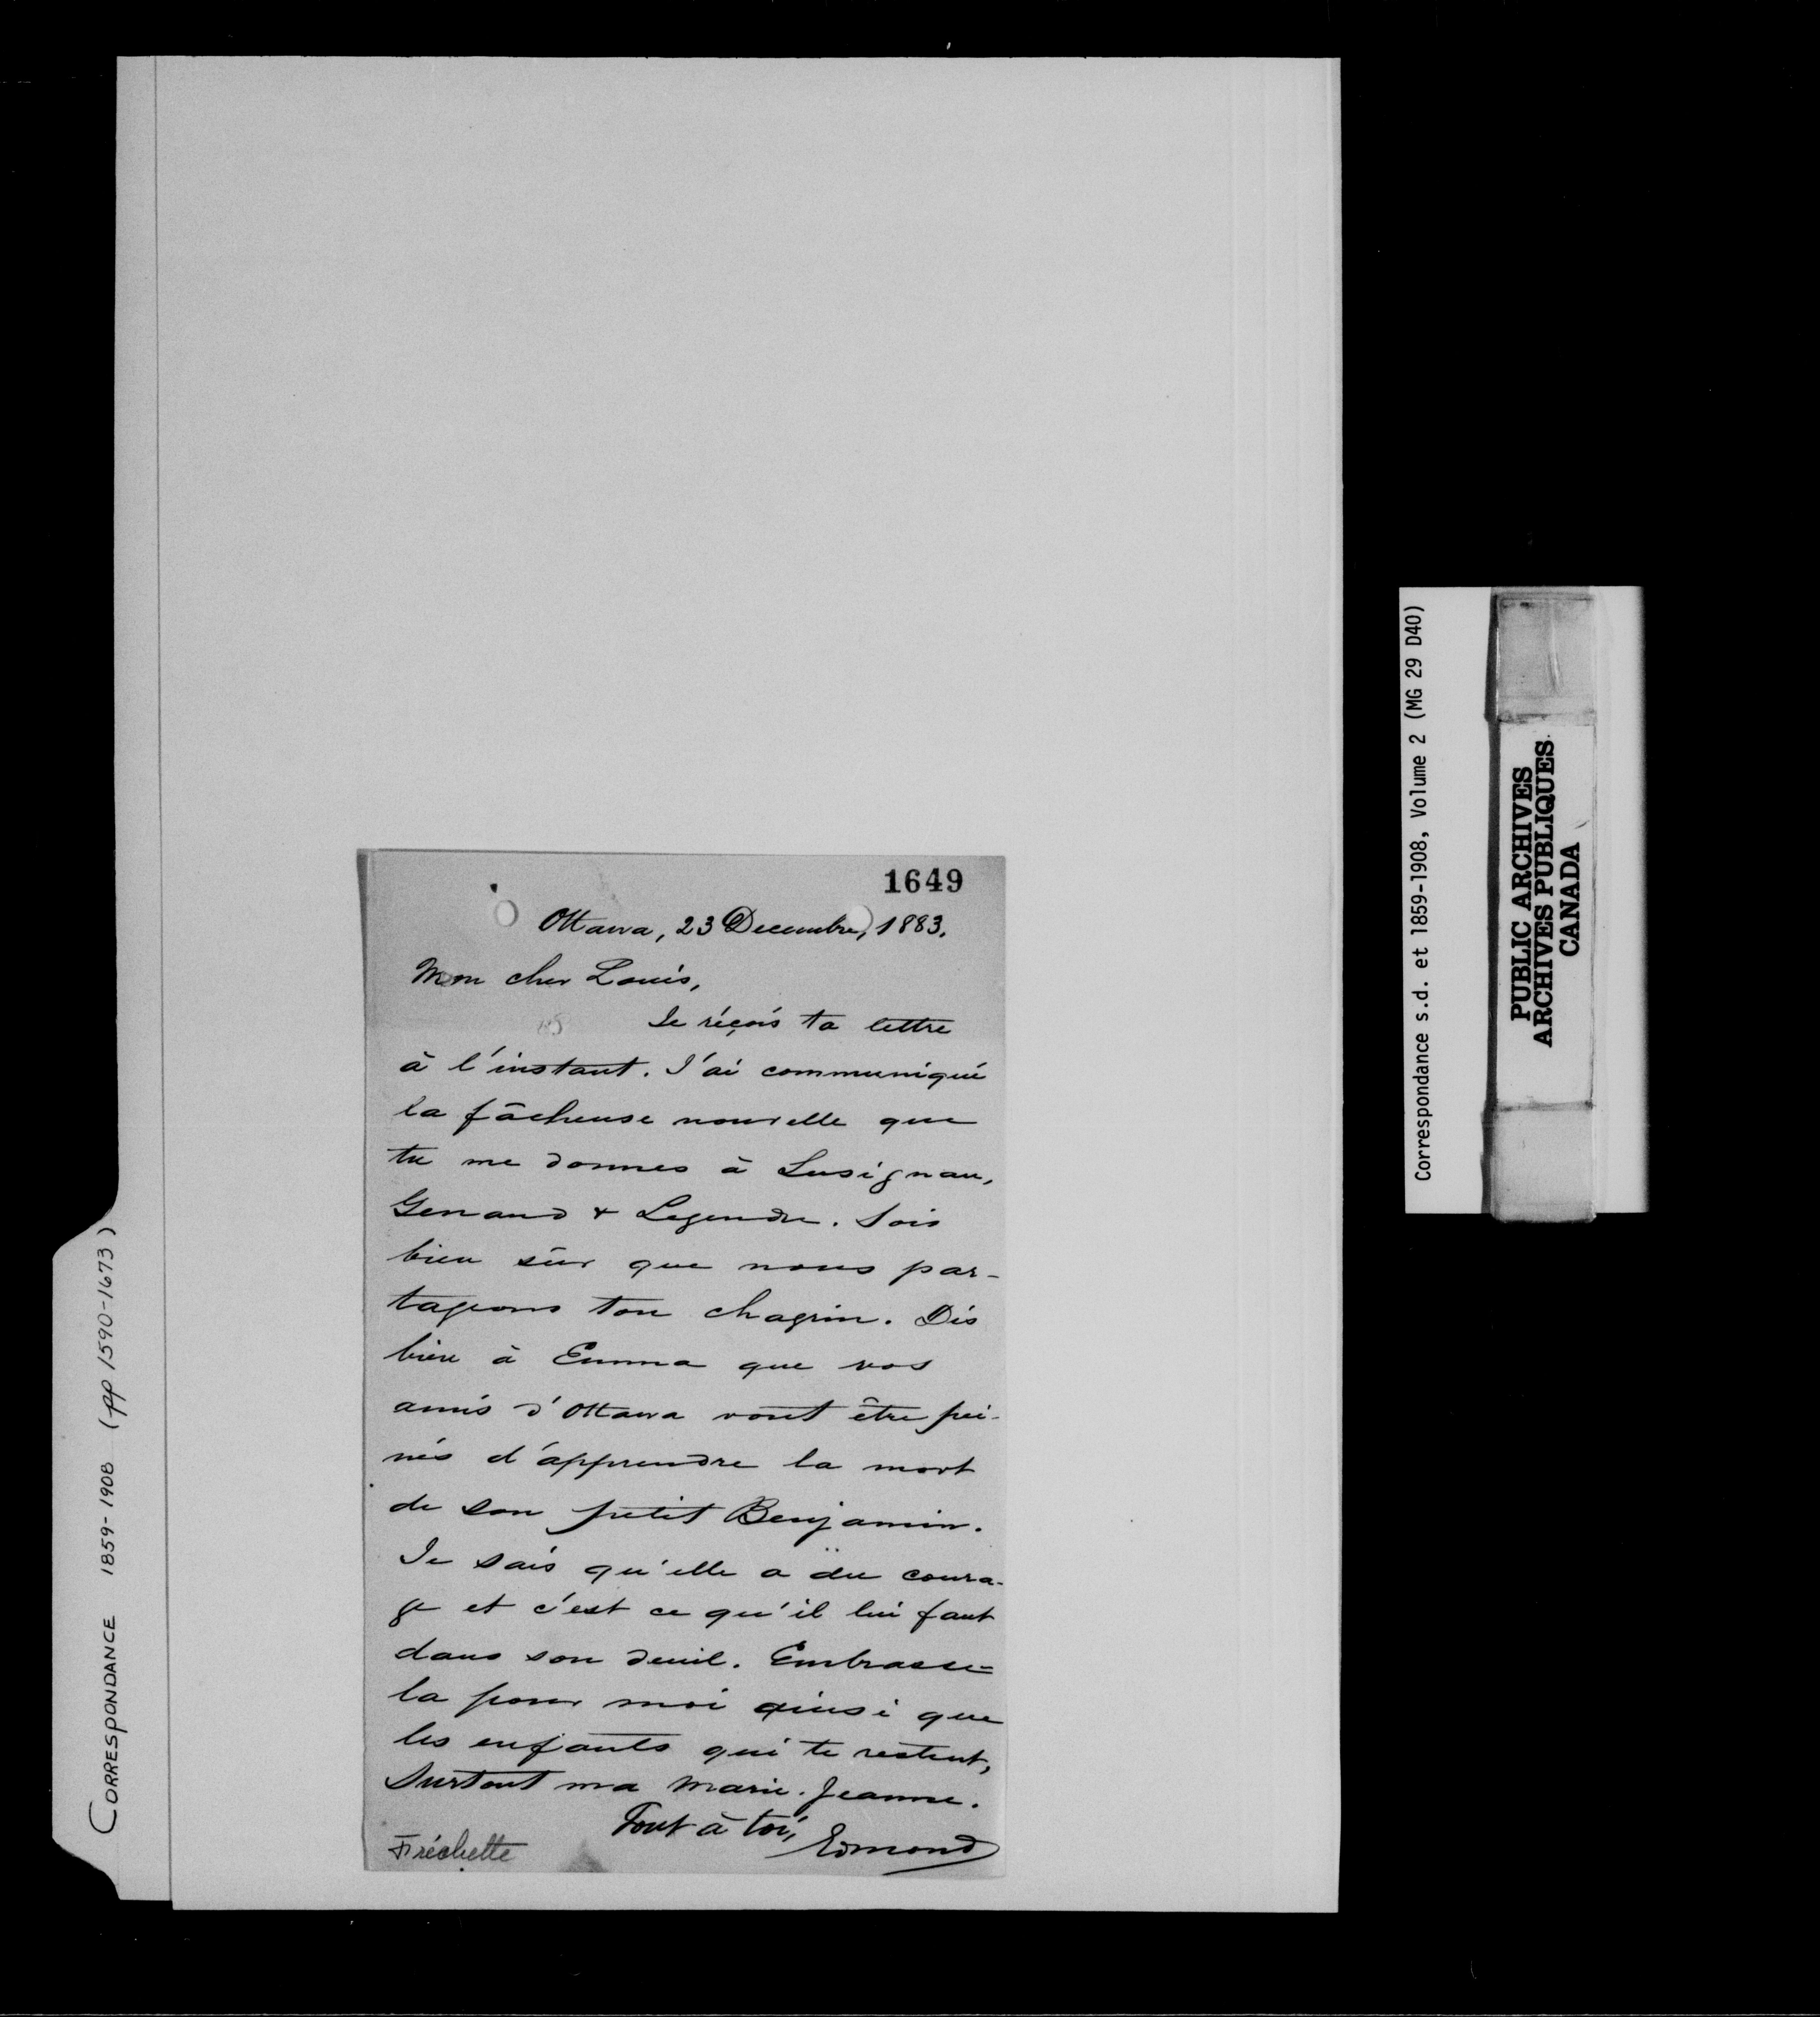 1649
Ottawa, 23 Decembre, 1883.
Mon cher Louis,
Je réçois ta lettre
à l'instant. J'ai communiqué
la fâcheuse nouvelle que
tu me donnes à Lusignan,
Genand & Legendre. Sois
bien sûr que nous par-
tageons ton chagrin. Dis
bien à Emma que vos
amis d'Ottawa vont être pei-
nés d'apprendre la mort
de son petit Benjamin.
Je sais qu'elle a du coura-
ge et c'est ce qu'il lui faut
dans son deuil. Embrasse-
la pour moi ainsi que
les enfants qui te restent,
surtout ma Marie-Jeanne.
Tout à toi,
Edmond
Fréchette
CORRESPONDANCE 1859-1908 (pp 1590-1673)
Correspondance s.d. et 1859-1908, Volume 2 (MG 29 D40)
PUBLIC ARCHIVES
ARCHIVES PUBLIQUES
CANADA